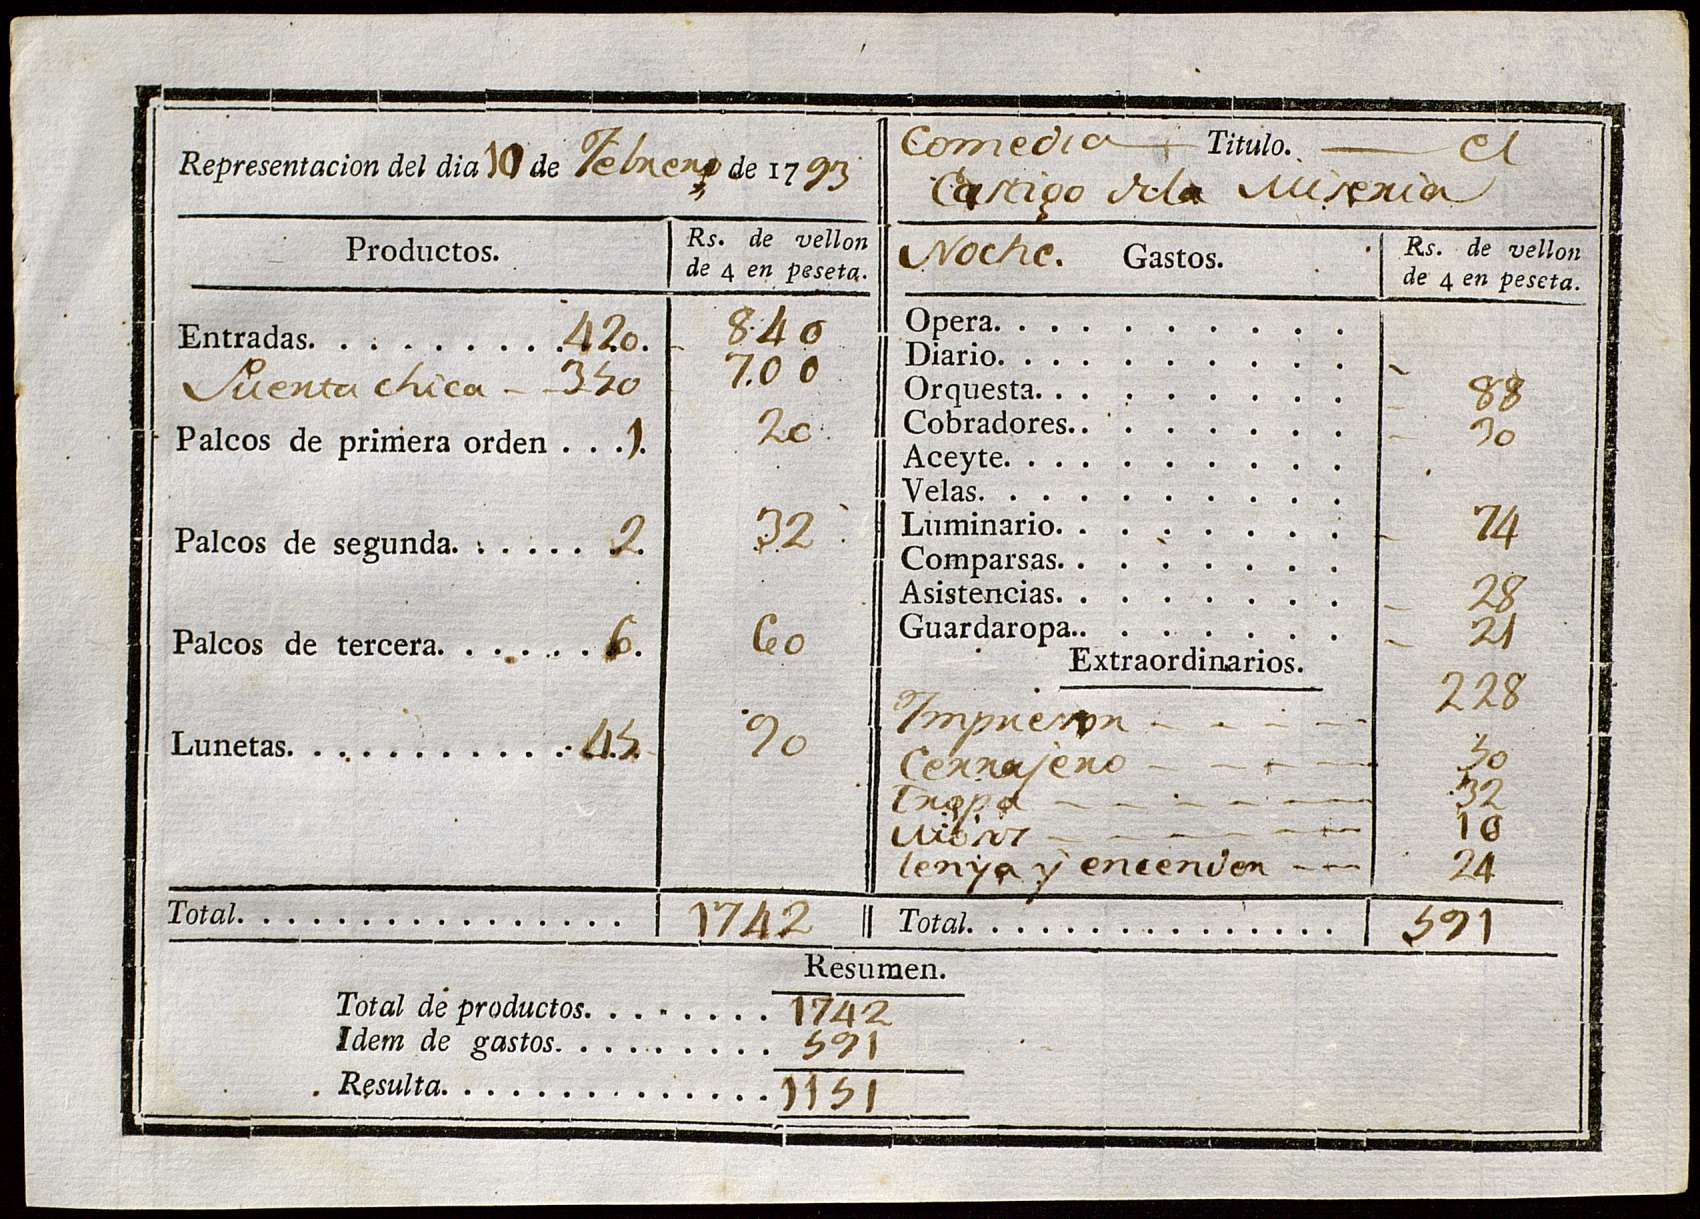 Representacion del dia 10 de Febrero de 1793
Comedia Titulo. el
Castigo dela Miseria
Productos.
Rs. de vellon
de 4 en peseta.
Entradas. 420. 840
Puerta chica 350 700
Palcos de primera orden 1. 20
Palcos de segunda. 2. 32
Palcos de tercera. 6. 60
Lunetas. 45. 90
Total. 1742
Noche. Gastos.
Rs. de vellon
de 4 en peseta.
Opera.
Diario.
Orquesta. 88
Cobradores. 30
Aceyte.
Velas.
Luminario. 74
Comparsas.
Asistencias. 28
Guardaropa. 21
Extraordinarios.
Impresion 228
Cerrajero 50
tropa 32
16
lenya y encender 24
Total. 591
Resumen.
Total de productos. 1742
Idem de gastos. 591
Resulta. 1151